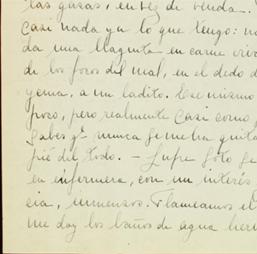 las gasas, en vez de venda.
Casi nada ya lo que tengo: no
da una llaguita en carne viva
de los focos del mal, en el dedo d
yema, a un ladito. Ese mismo
poco, pero realmente casi como
sabes qe nunca se me ha quita
pié del todo. —
en enfermera, con un interés
cia, inmensos. Flameamos el
me doy los baños de agua herv